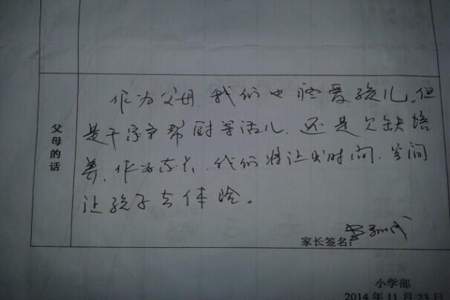 父母的话
作为父母,我们也疼爱孩儿,但
是干家务帮厨等活儿,还是欠缺培
养,作为家长,我们将让出时间、空间
让孩子去体验。
家长签名:
小学部
2014年11月23日